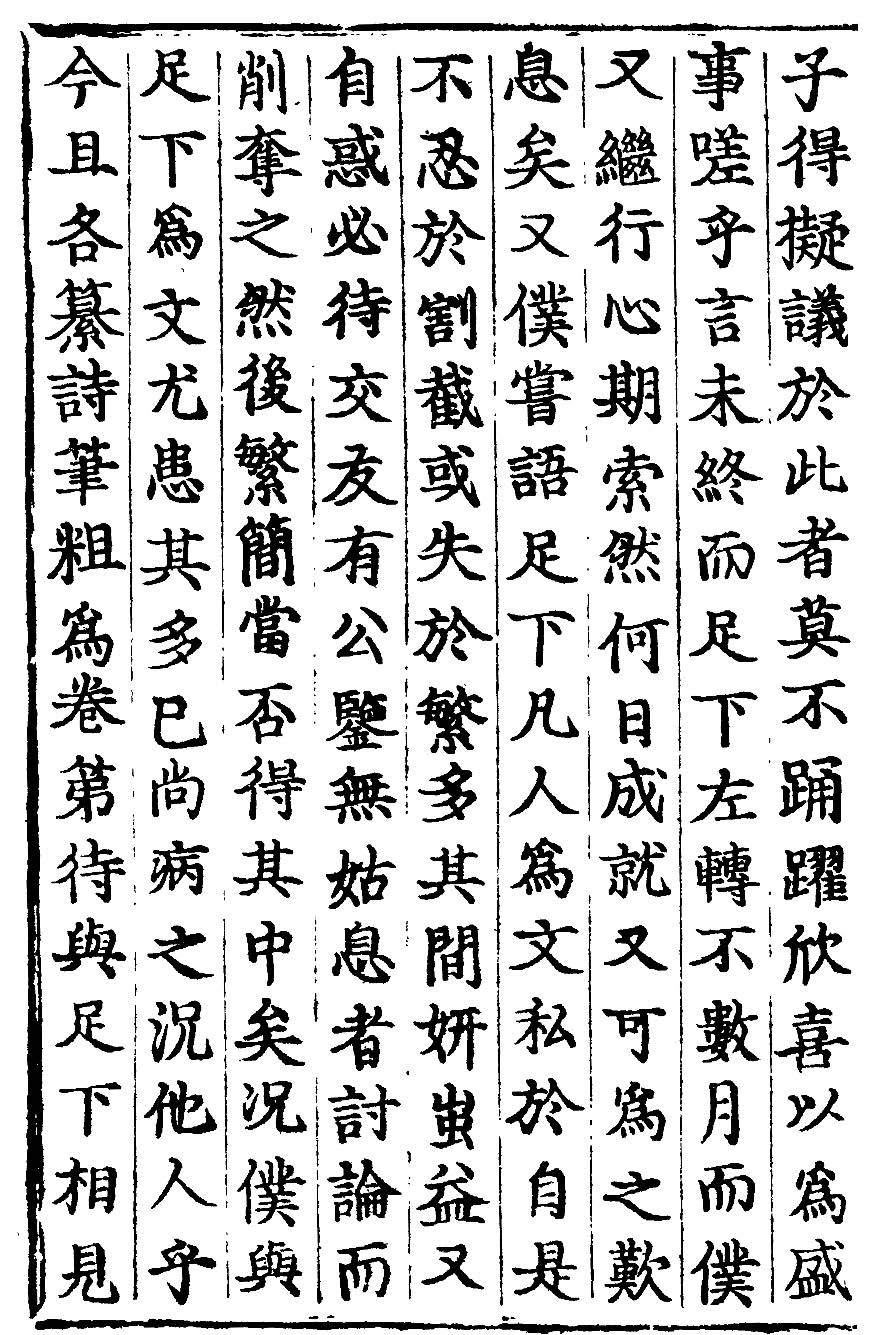 子得擬議於此者莫不踊躍欣喜以爲盛
事嗟乎言未終而足下左轉不數月而僕
又繼行心期索然何日成就又可爲之歎
息矣又僕嘗語足下凡人爲文私於自是
不忍於割截或失於繁多其間妍蚩益又
自惑必待交友有公鑒無姑息者討論而
削奪之然後繁簡當否得其中矣况僕與
足下爲文尤患其多已尚病之況他人乎
今且各纂詩筆粗爲卷第待與足下相見